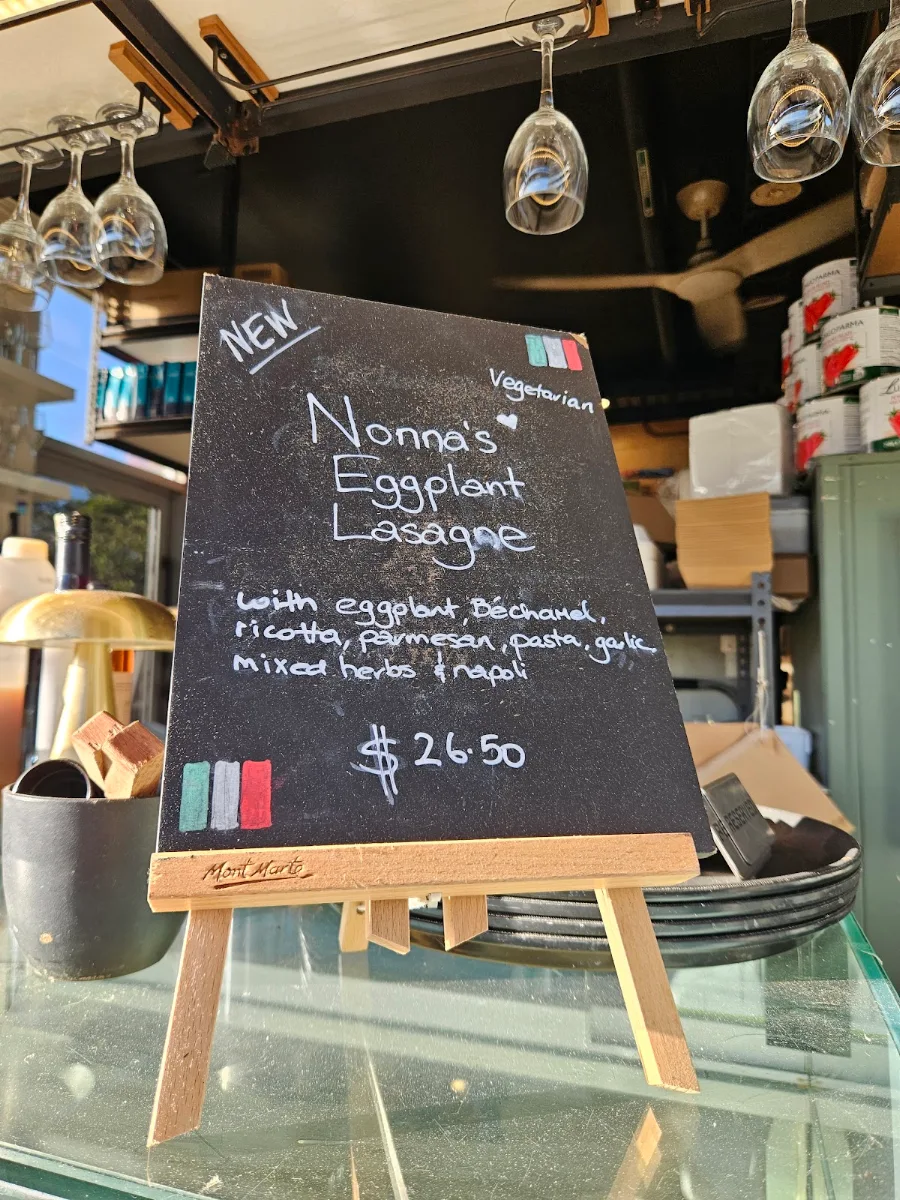 NEW
Vegetarian
Nonna's
Eggplant
Lasagne
with eggplant, Béchamel,
ricotta, parmesan, pasta, garlic
mixed herbs & napoli
$26.50
Mont Marte